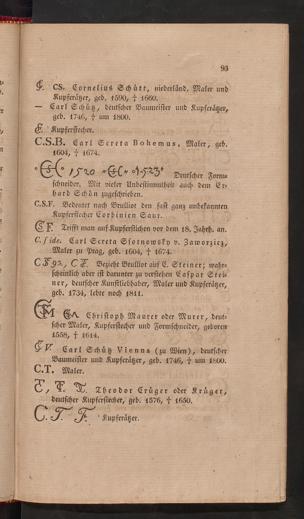 93
CS. Cornelius Schütt, niederländ. Maler und
Kupferätzer, geb. 1590, † 1660.
— Carl Schütz, deutscher Baumeister und Kupferätzer,
geb. 1746, † um 1800.
Kupferstecher.
C.S.B. Carl Screta Bohemus, Maler, geb.
1604, † 1674.
1520 1523 Deutscher Form-
schneider. Mit vieler Unbestimmtheit auch dem Er-
hard Schön zugeschrieben.
C.S.F. Bedeutet nach Brulliot den fast ganz unbekannten
Kupferstecher Corbinien Saur.
C F. Trifft man auf Kupferstichen vor dem 18. Jahrh. an.
C. f ide. Carl Screta Sfotnowsky v. Jaworzicz,
Maler zu Prag, geb. 1604, † 1674.
92, Bezieht Brulliot auf C. Steiner; wahr-
scheinlich aber ist darunter zu verstehen Caspar Stei-
ner, deutscher Kunstliebhaber, Maler und Kupferätzer,
geb. 1734, lebte noch 1811.
Christoph Maurer oder Murer, deut-
scher Maler, Kupferstecher und Formschneider, geboren
1558, † 1614.
Carl Schütz Vienna (zu Wien), deutscher
Baumeister und Kupferätzer, geb. 1746, † um 1800.
C.T. Maler.
Theodor Crüger oder Krüger,
deutscher Kupferstecher, geb. 1576, † 1650.
C. T. F. Kupferätzer.